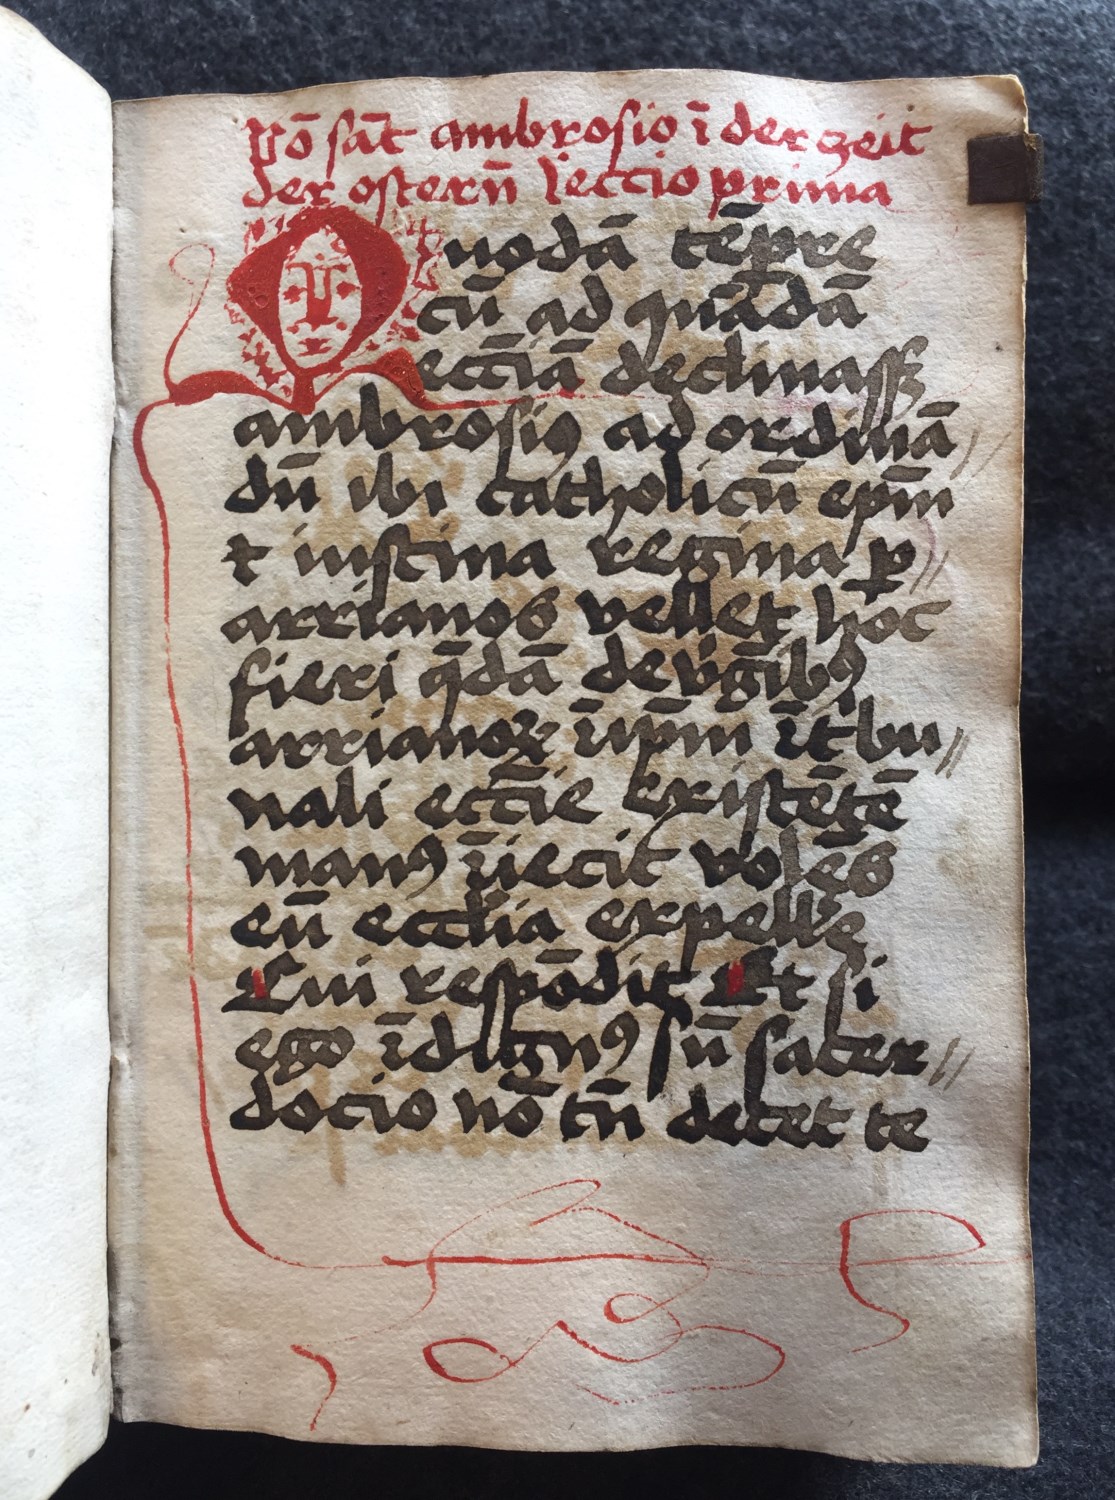 Vō sāt ambrosio ī der zeit
der ostern̄ leccio prima
Quodā tēpre
cū ad quādā
ecc̄iā declinass3
ambrosiꝰ ad ordinā
dū ibi catholicū ep̄m
⁊ iustina regina ꝑ
arrianos vellet hoc
fieri q̄dā de v̄gībꝰ
arrianoꝝ īn̄pm̄ ī t̄bu
nali ecc̄ie existētē
manꝰ īiecit volēs
eū eccl̄ia expelle
Cui respōdit Et si
ego īdignꝰ sū sacer
docio nō tn̄ decet te